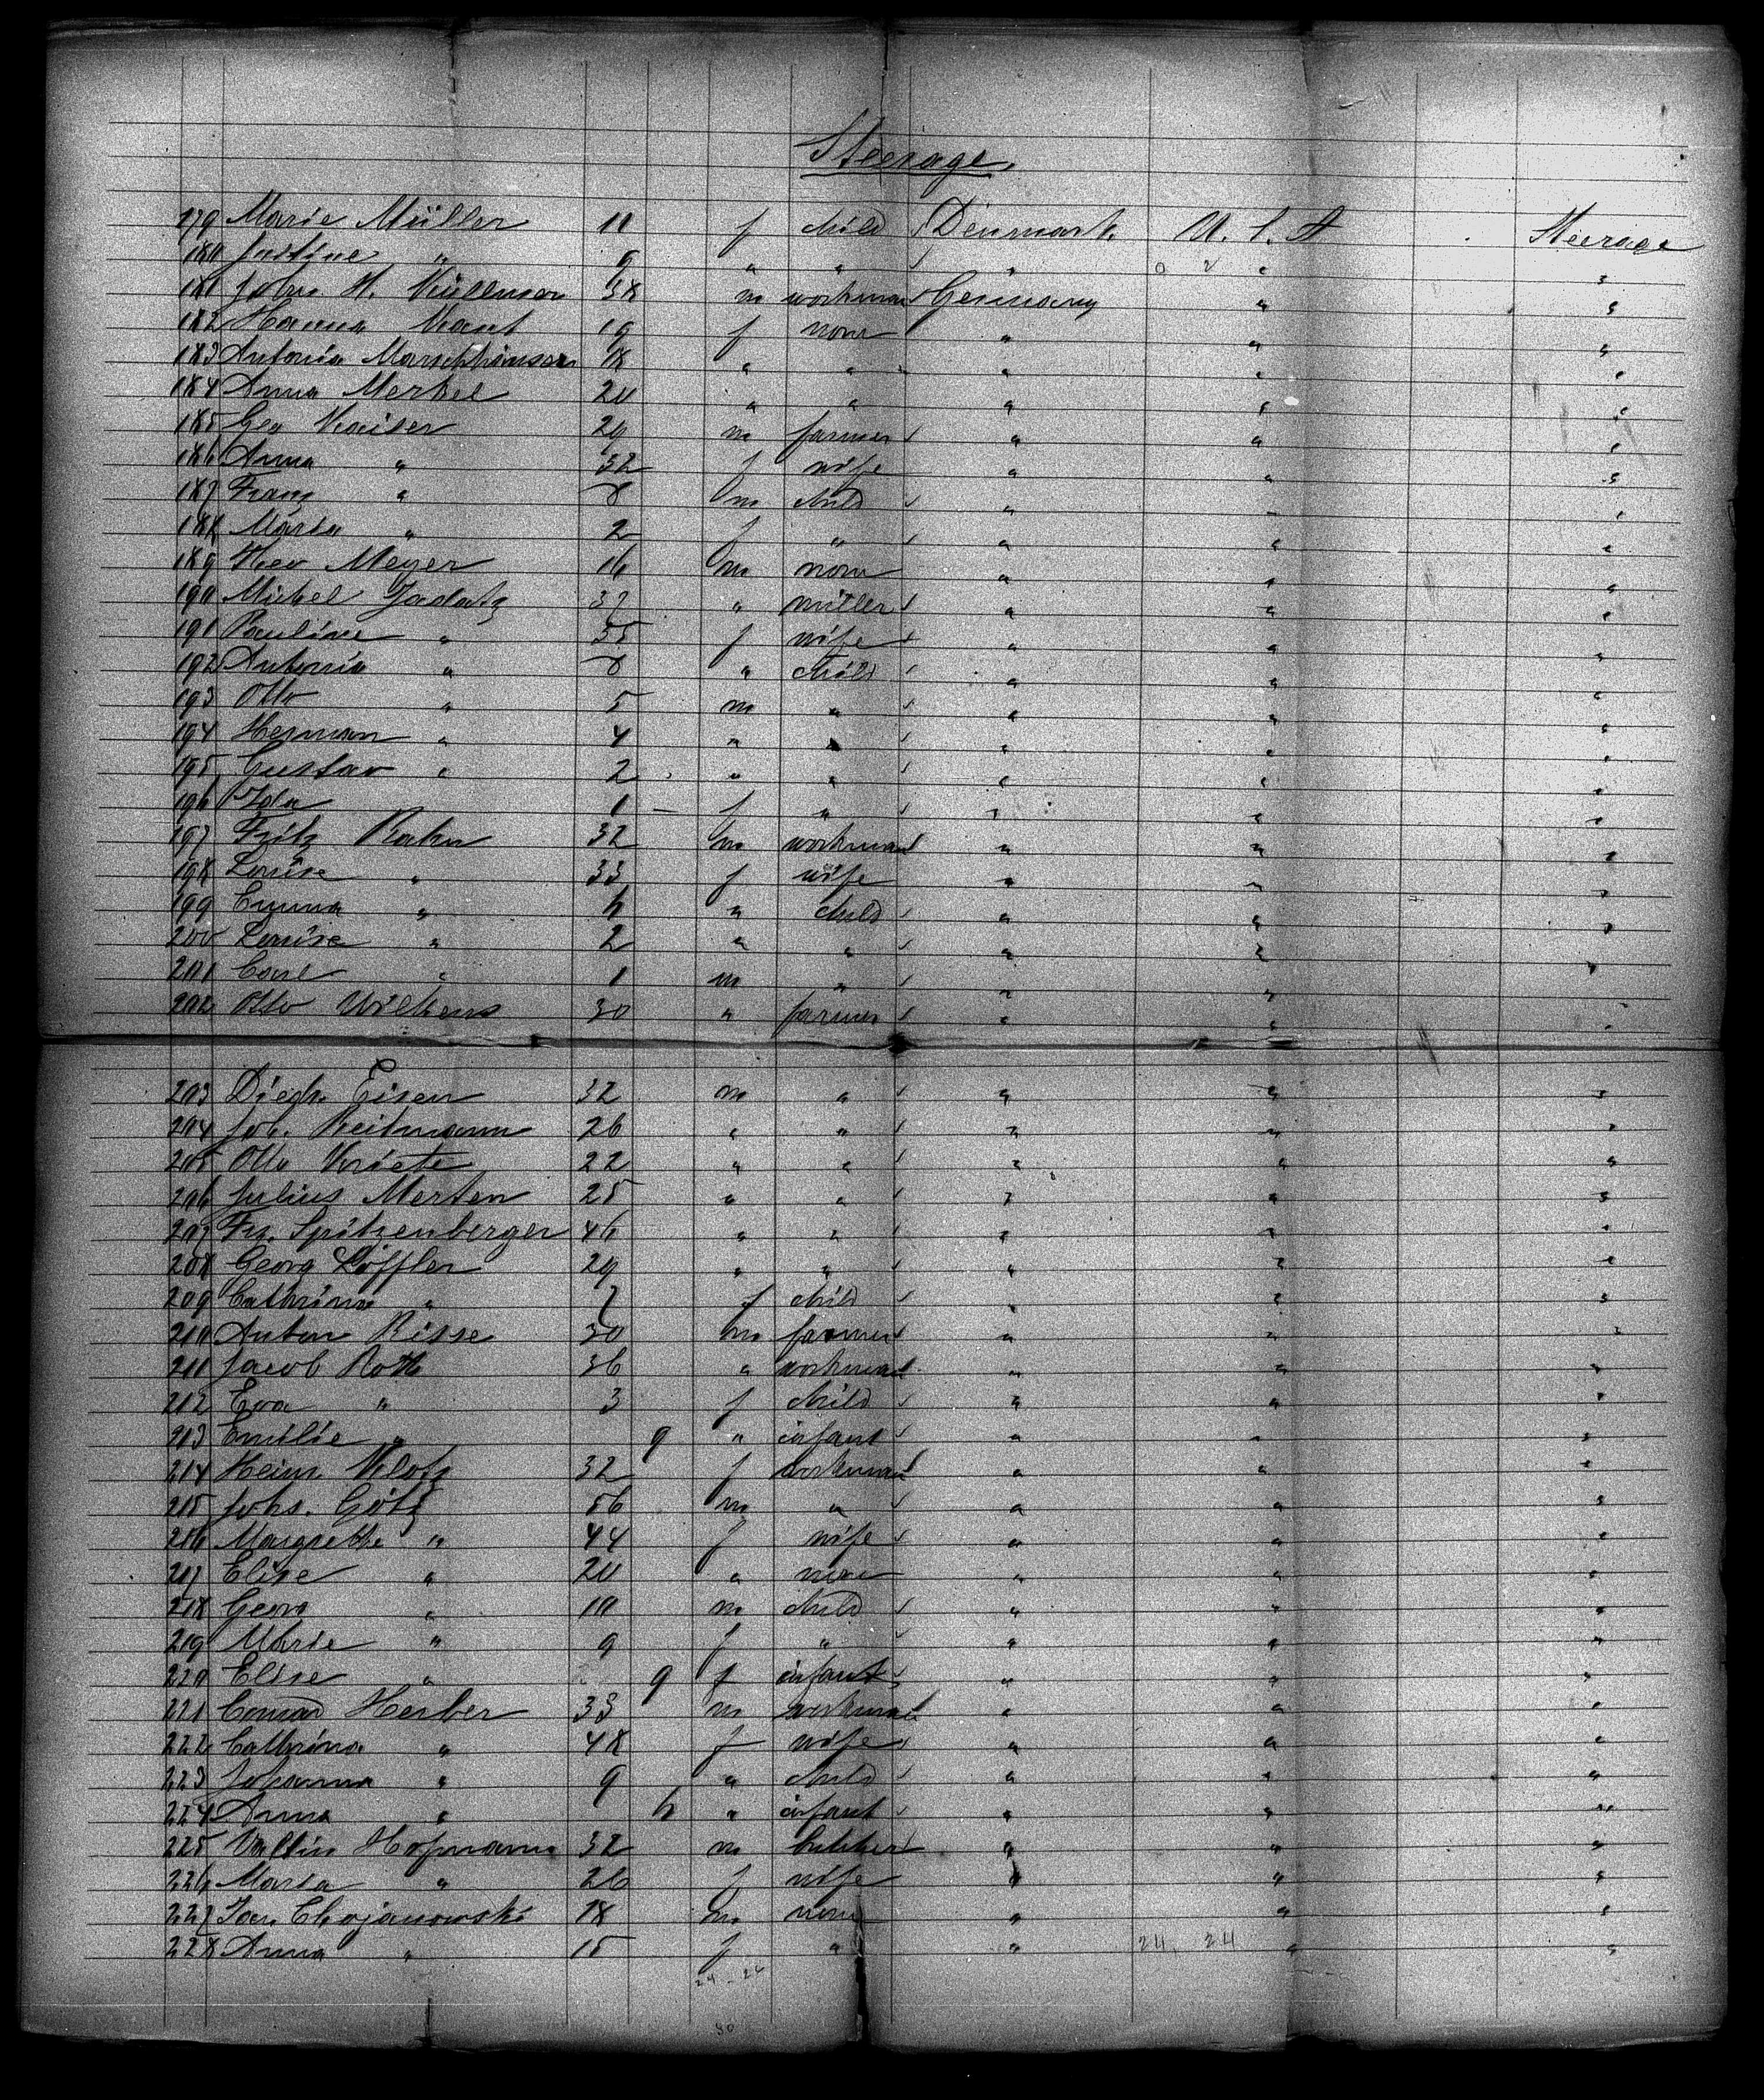 Steerage.
179 Marie Müller 11 f child Denmark U. S. A Steerage
180 Justine " 9 " " " " "
181 John H. Küllmer 38 m workman Germany " "
182 Hanna Kant 19 f none " " "
183 Antonia 18 " " " " "
184 Anna Merkel 20 " " " " "
185 Geo Kaiser 29 m farmer " " "
186 Anna " 32 f wife " " "
187 Franz " 8 m child " " "
188 Maria " 2 f " " " "
189 Heo Meyer 16 m none " " "
190 Michel Jadatz 37 " miller " " "
191 Pauline " 35 f wife " " "
192 Antonia " 8 " child " " "
193 Otto " 5 m " " " "
194 Herman " 4 " " " " "
195 Gustav " 2 " " " " "
196 Ida 1 — f " " " "
197 Fritz Rahn 32 m workman " " "
198 Louise " 33 f wife " " "
199 Emma " 6 " child " " "
200 Louise " 2 " " " " "
201 Carl " 1 m " " " "
202 Otto Wilkens 30 " farmer " " "
203 Diedr. Eisen 32 m " " " "
204 Joh. Reitmann 26 " " " " "
205 Otto Kriete 22 " " " " "
206 Julius Merten 25 " " " " "
207 Fr. Spitzenberger 46 " " " " "
208 Georg Löffler 29 " " " " "
209 Cathrina " 7 f child " " "
210 Anton Risse 30 m farmer " " "
211 Jacob Roth 36 " workman " " "
212 Eva " 3 f child " " "
213 Emilie " 9 " infant " " "
214 Heinr. Klotz 32 f workman " " "
215 Johs. Götz 56 m " " " "
216 Margrethe " 44 f wife " " "
217 Elise " 20 " none " " "
218 Georg " 10 m child " " "
219 Marie " 9 f " " " "
220 Elise " 9 f infant " " "
221 Conrad Herber 33 m workman " " "
222 Cathrina " 48 f wife " " "
223 Johanna " 9 " child " " "
224 Anna " 6 " infant " " "
225 Valtin Hofmann 32 m butcher " " "
226 Maria " 26 f wife " " "
227 Jan Chojanowski 18 m none " " "
228 Anna " 15 f " " 24. 24 " "
24 - 24
80